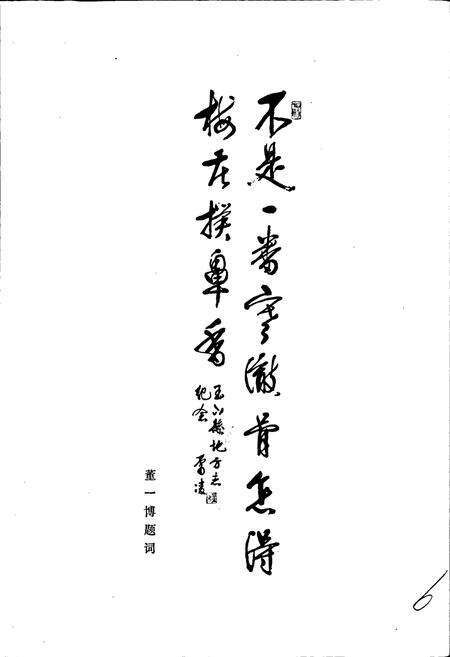 不是一番寒澈骨怎得
梅花撲鼻香
玉山县地方志
纪念
董一博题词
6